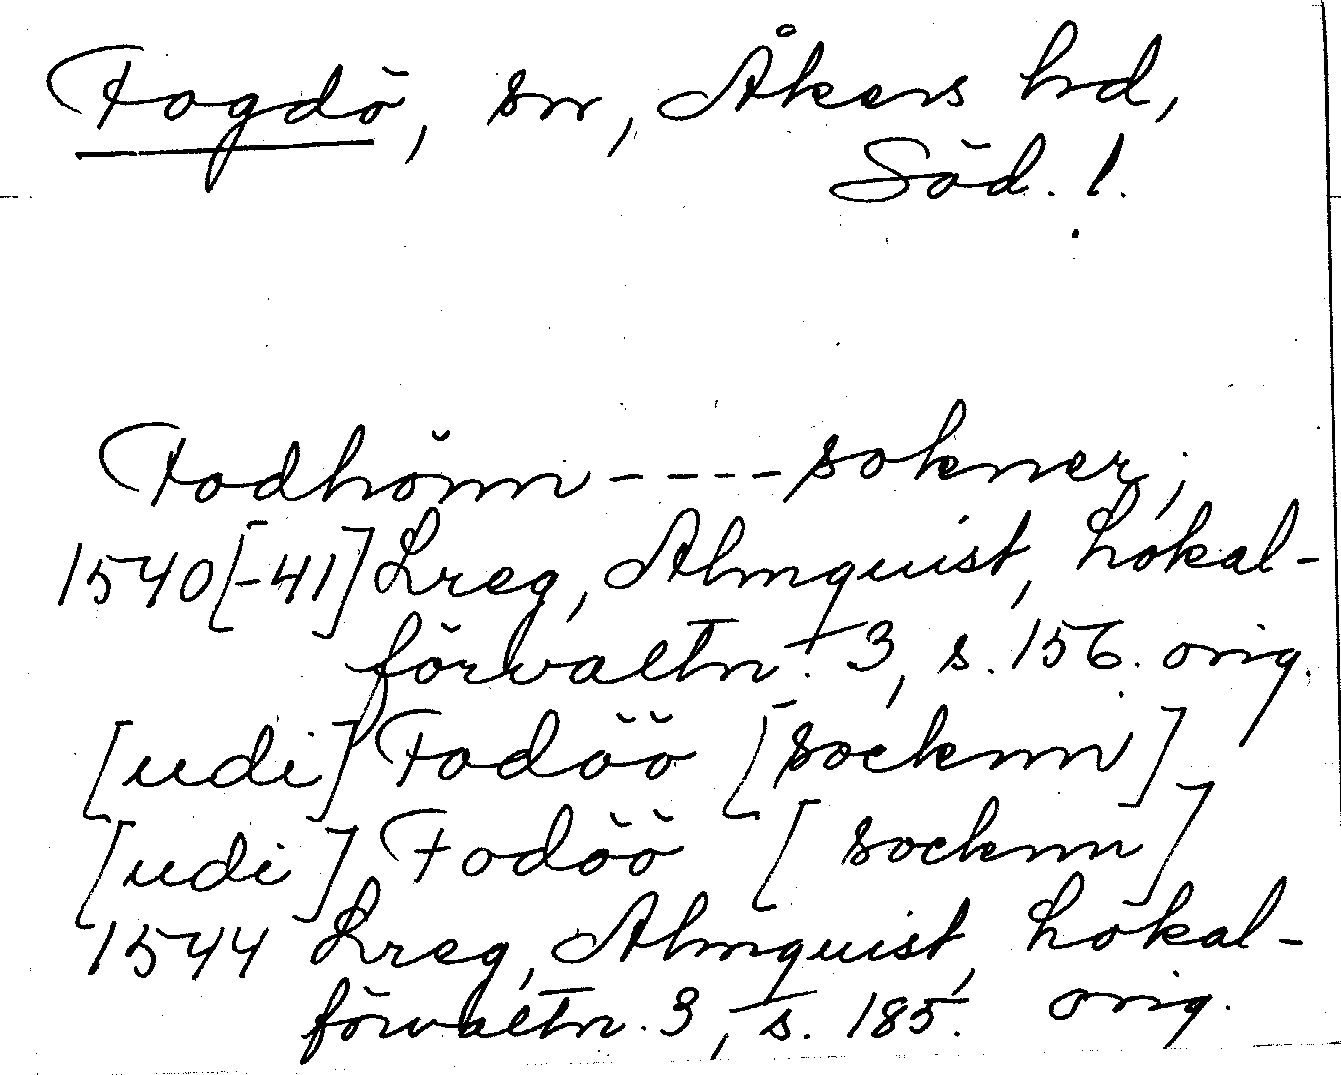 Fogdö, sn, Åkers hd,
Söd. l.
Fodhönn - - - - sokner,
1540[-41] Lreg, Almquist, Lokal-
förvaltn. 3, s. 156. orig.
[udi] Fodöö [socknn]
[udi] Fodöö [socknn]
1544 Lreg, Almquist, Lokal-
förvaltn. 3, s. 185. orig.